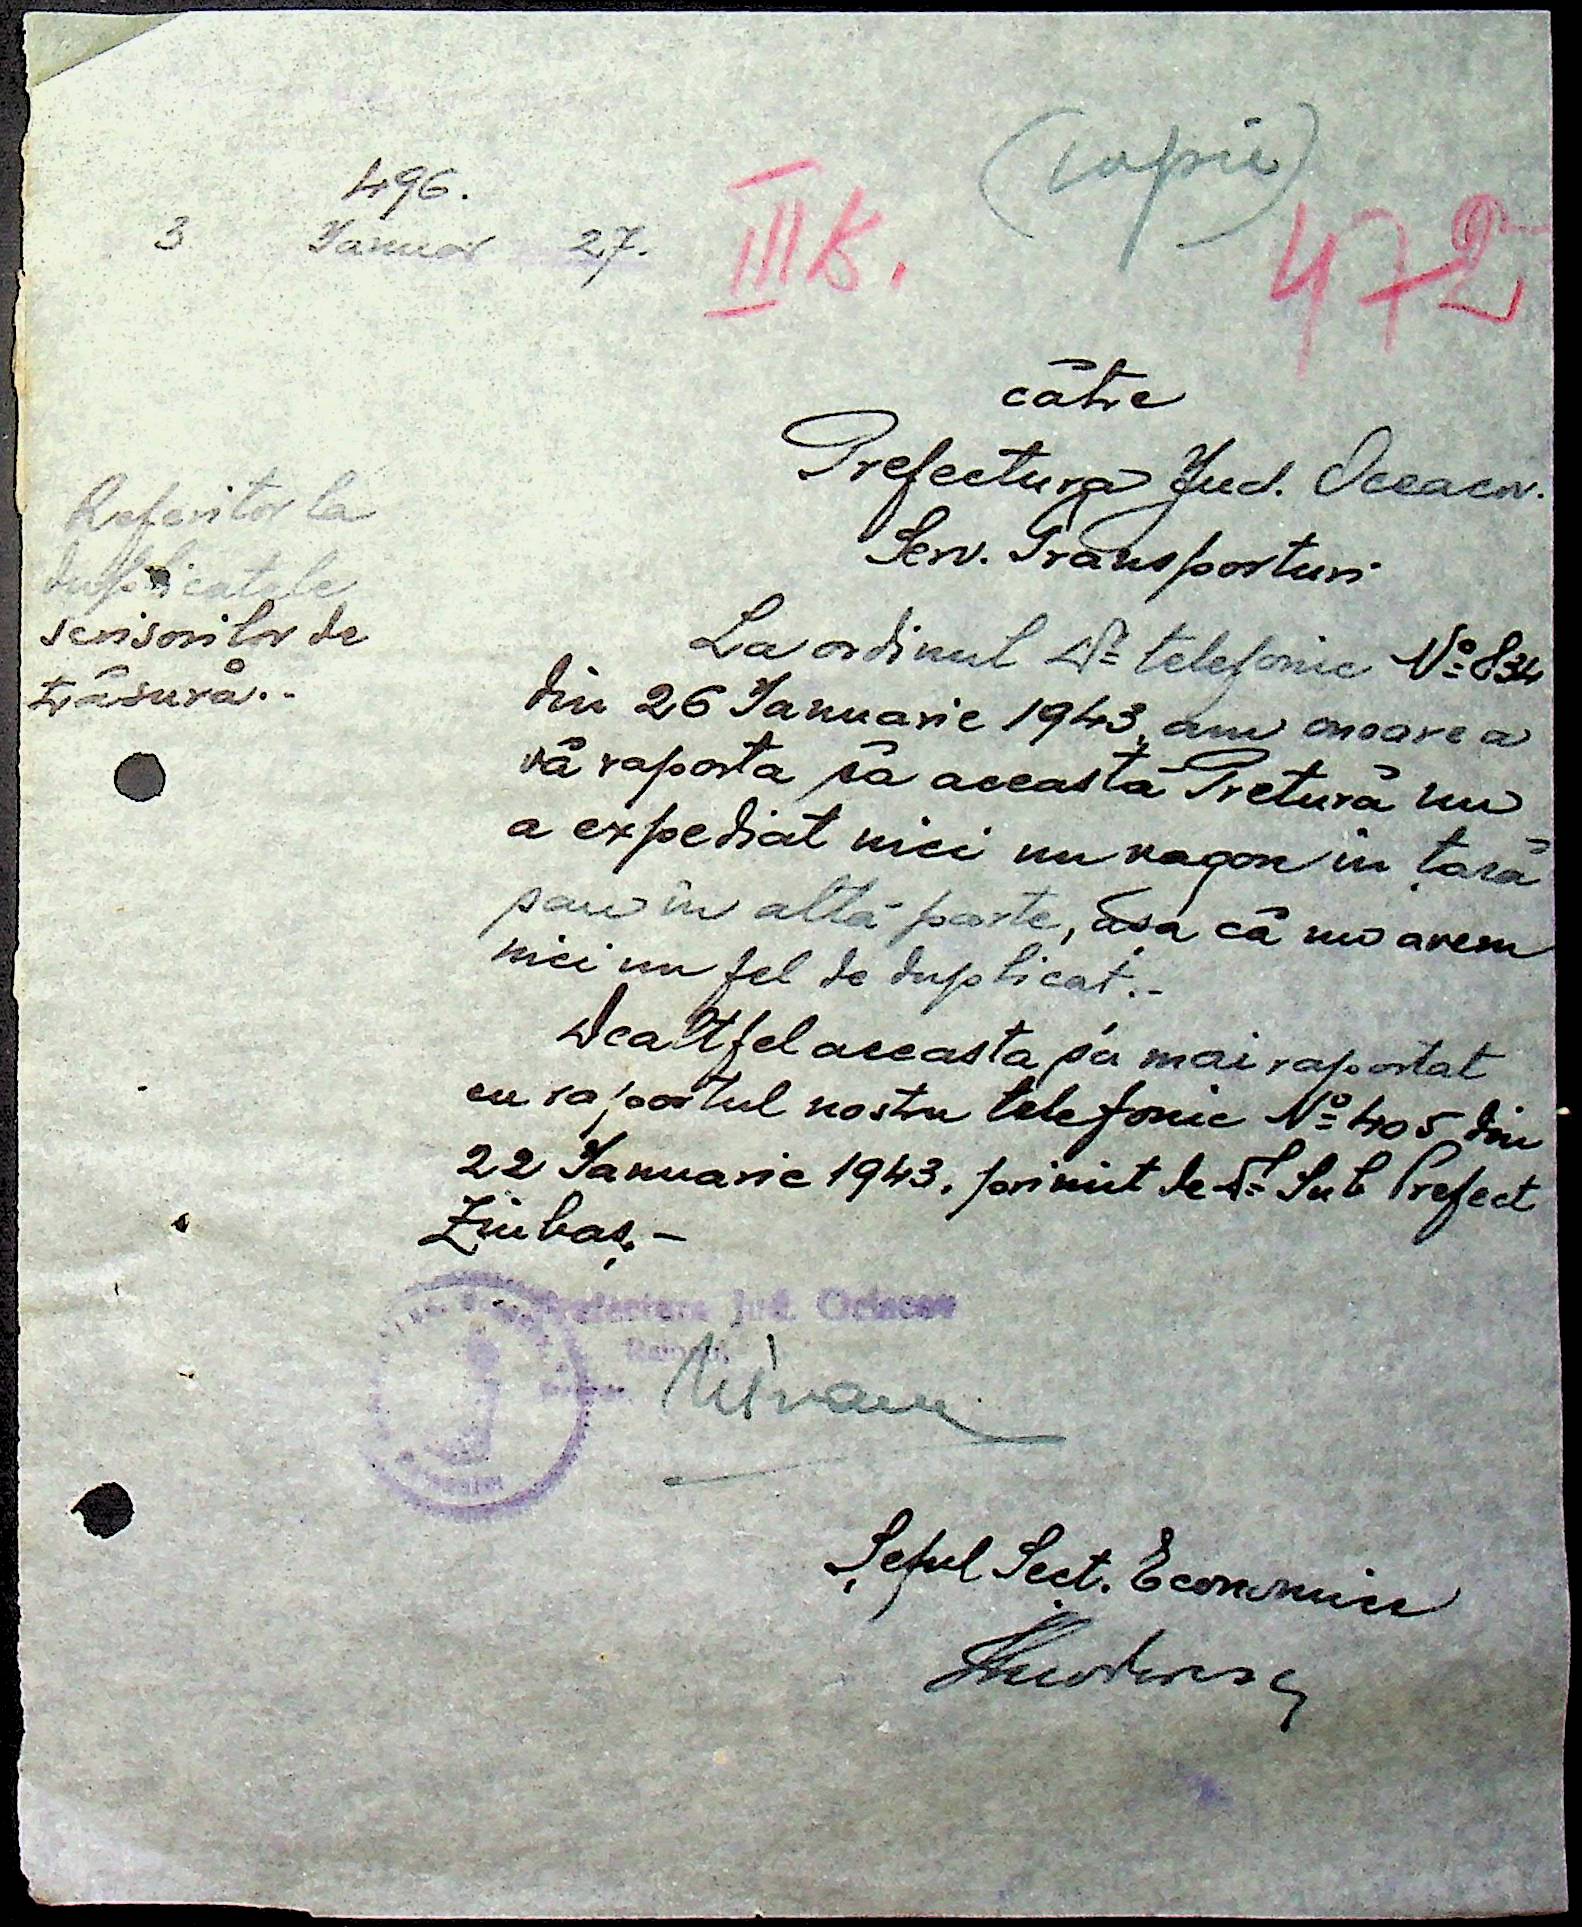 (Copie)
496.
3 Januar 27.
III B.
472
către
Prefectura Jud. Oceacov.
Serv. Transporturi
Referitor la
duplicatele
scrisorilor de
trăsură..
La ordinul Dv. telefonic No 834
din 26 Ianuarie 1943, am onoare a
vă raporta că această Pretură nu
a expediat nici un vagon în țară
sau în altă parte, așa că nu avem
nici un fel de duplicat.-
Dealtfel aceasta s'a mai raportat
cu raportul nostru telefonic No 405 din
22 Ianuarie 1943. primit de Dl Sub Prefect
Zimbaș.-
Prefectura Jud. Ociacov
Șeful Sect. Economic